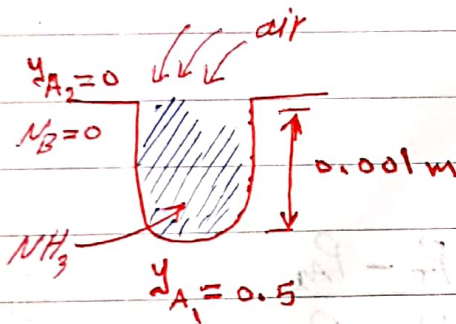 air
y_A₂ = 0
N_B = 0
0.001 m
NH₃
y_A₁ = 0.5